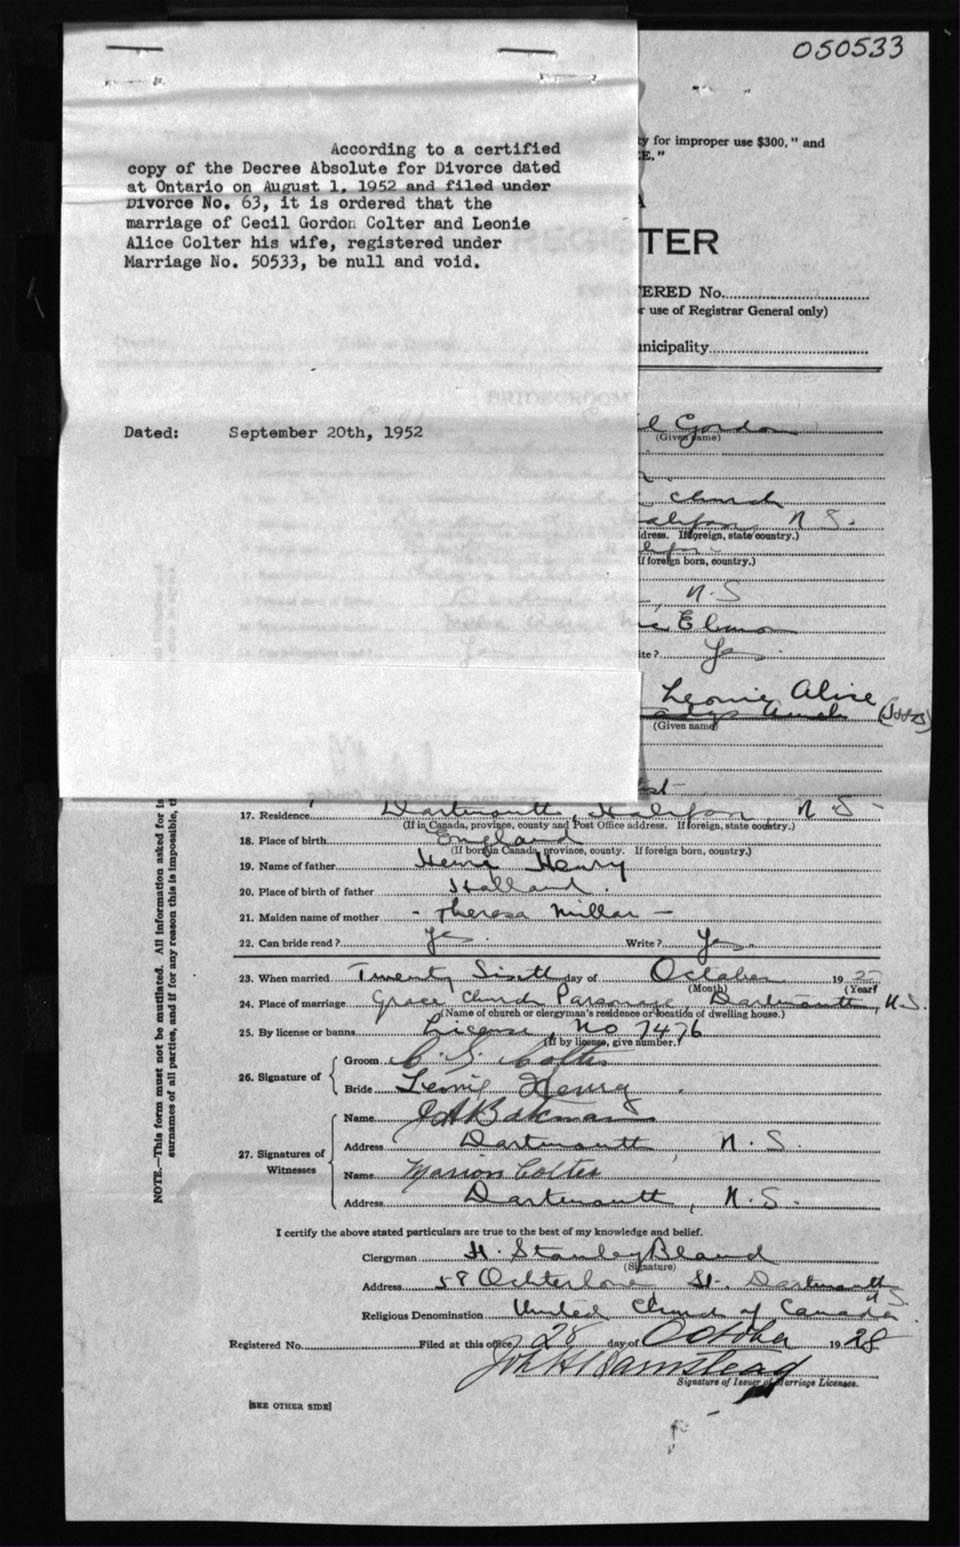 050533
According to a certified
copy of the Decree Absolute for Divorce dated
at Ontario on August 1, 1952 and filed under
Divorce No. 63, it is ordered that the
marriage of Cecil Gordon Colter and Leonie
Alice Colter his wife, registered under
Marriage No. 50533, be null and void.
Dated: September 20th, 1952
y for improper use $300," and
E."
TER
ERED No.
r use of Registrar General only)
nicipality
l Gordon
(Given name)
Church
alifax, N S.
dress. If foreign, state country.)
f foreign born, country.)
N.S
Mc Elmon
ite? Yes
Leonie Alice
(Given name)
17. Residence Dartmouth, Halifax N S
(If in Canada, province, county and Post Office address. If foreign, state country.)
18. Place of birth England
(If born in Canada, province, county. If foreign born, country.)
19. Name of father Henry
20. Place of birth of father Holland.
21. Maiden name of mother - Theresa Millar -
22. Can bride read? Yes. Write? Yes.
23. When married Twenty Sixth day of October 19
(Month) (Year)
24. Place of marriage Grace Church Parsonage, Dartmouth, N.S.
(Name of church or clergyman's residence or location of dwelling house.)
25. By license or banns License, No 7476
(If by license, give number.)
26. Signature of
Groom C. G. Colter
Bride Leonie Henry
27. Signatures of Witnesses
Name J A Bakman
Address Dartmouth, N.S.
Name Marion Colter
Address Dartmouth, N.S.
I certify the above stated particulars are true to the best of my knowledge and belief.
Clergyman H. Stanley Bland
(Signature)
Address 58 Ochterlone St. Dartmouth N S.
Religious Denomination United Church of Canada
Registered No. Filed at this office 28 day of October 1928
Signature of Issuer of Marriage Licenses.
[SEE OTHER SIDE]
NOTE.—This form must not be mutilated. All information asked for is
surnames of all parties, and if for any reason this is impossible, t